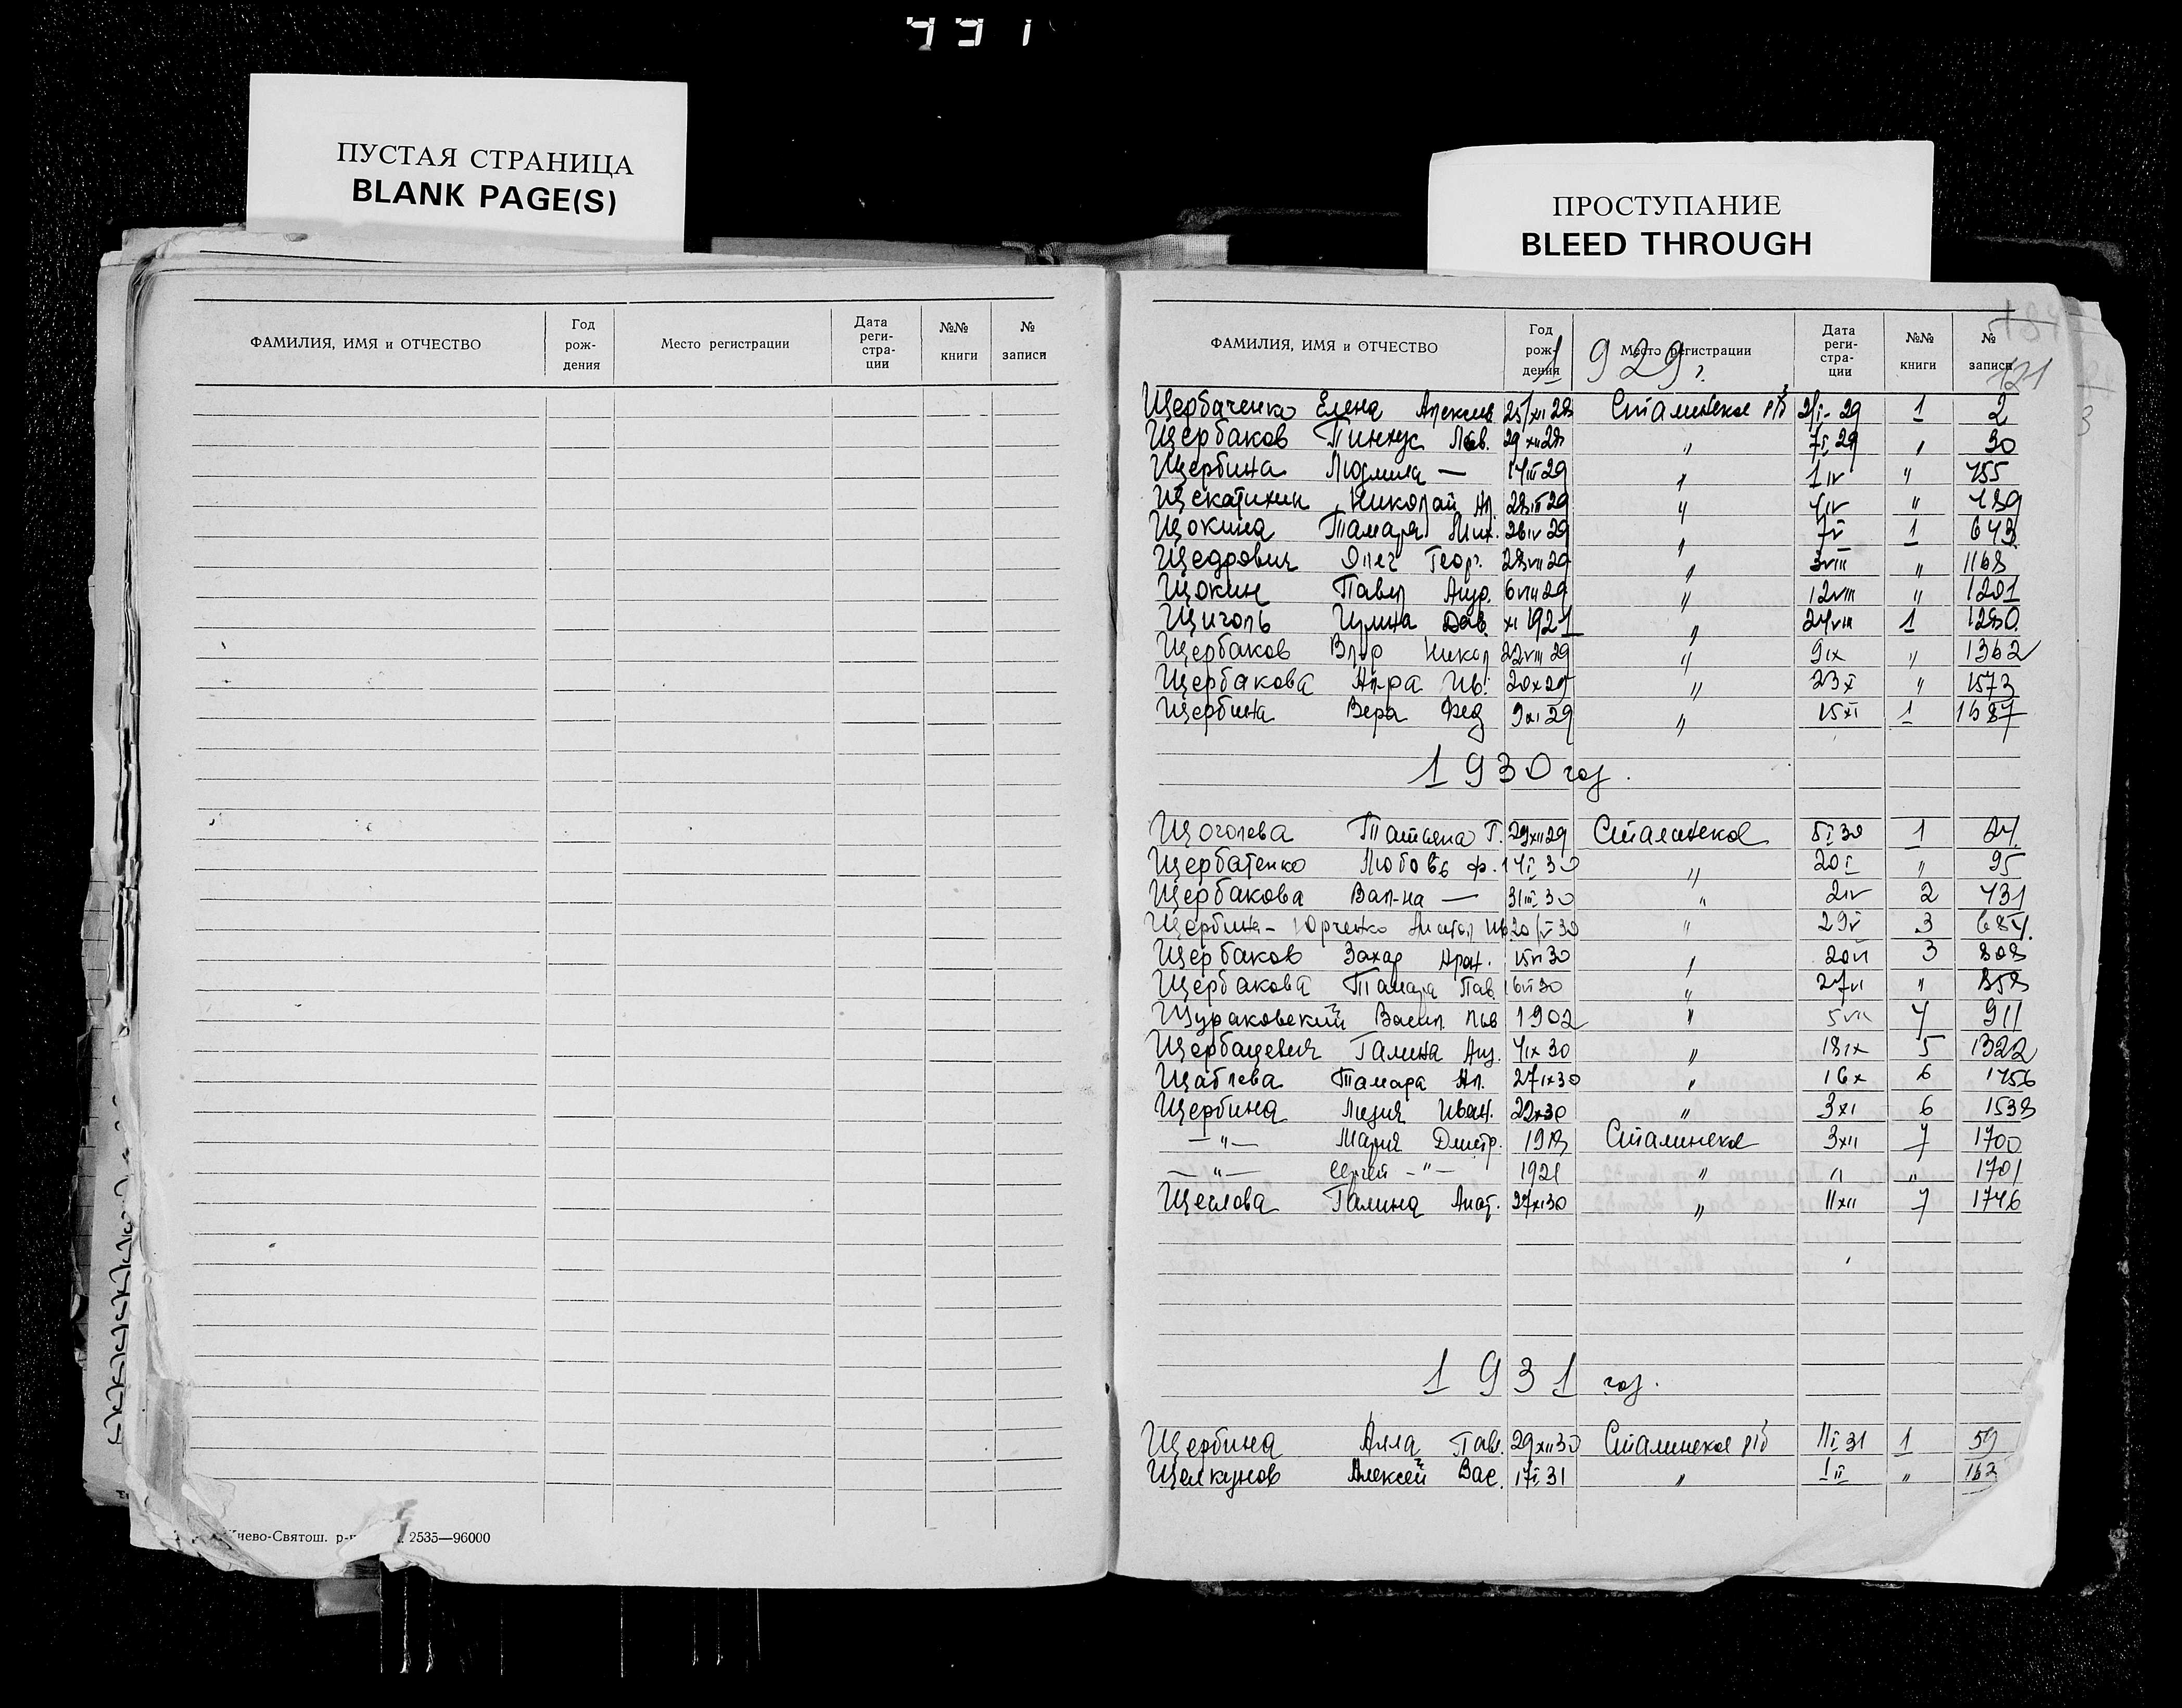 991
ПУСТАЯ СТРАНИЦА
BLANK PAGE(S)
ПРОСТУПАНИЕ
BLEED THROUGH
ФАМИЛИЯ, ИМЯ и ОТЧЕСТВО Год рож-дения Место регистрации Дата реги-стра-ции №№ книги № записи
Киево-Святош. 2535—96000
ФАМИЛИЯ, ИМЯ и ОТЧЕСТВО Год рож-дения Место регистрации Дата реги-стра-ции №№ книги № записи
1929 г.
121
Щербаченко Елена Алексеев 25/XII 28 Сталинское р/б 2/I-29 1 2
Щербаков Пинхус Лев. 29 XII 28 " 7 I 29 " 30
Щербина Людмила — 14 III 29 " 1 IV " 455
Щекатихин Николай Ал. 28 III 29 " 4 IV " 489
Щокина Тамара Мих. 26 IV 29 " 7 V 1 643
Щедрович Олег Георг. 28 VII 29 " 3 VIII " 1168
Щокин Павел Андр. 6 VIII 29 " 12 VIII " 1201
Щиголь Ирина Дав. XI 1921 " 24 VIII 1 1280
Щербаков Вл-р Никол 22 VIII 29 " 9 IX " 1362
Щербакова Ал-ра Ив. 20 X 29 " 23 X " 1573
Щербина Вера Фед 9 XI 29 " 15 XI 1 1687
1930 год.
Щоголева Татьяна Г. 29 XII 29 Сталинское 5 I 30 1 24
Щербатенко Любовь Ф. 14 I 30 " 20 I " 95
Щербакова Вал-на — 31 III 30 " 2 IV 2 431
Щербина-Юрченко Анатол Ив 20/V 30 " 29 V 3 684
Щербаков Захар Арон. 15 VI 30 " 20 VI 3 808
Щербакова Тамара Пав. 16 VI 30 " 27 VI " 858
Щураковский Васил. Льв 1902 " 5 VII 4 911
Щербацевич Галина Анд. 4 IX 30 " 18 IX 5 1322
Щаблева Тамара Ал. 27 IX 30 " 16 X 6 1456
Щербина Лидия Иван. 22 X 30 " 3 XI 6 1538
—"— Мария Дмитр. Сталинское 3 XII 7 1700
—"— Сергей —"— 1921 " " " 1701
Щеглова Галина Анат. 27 XI 30 " 11 XII 7 1746
1931 год.
Щербина Алла Пав. 29 XII 30 Сталинское р/б 11 I 31 1 59
Щелкунов Алексей Вас. 17 I 31 " 1 II " 162